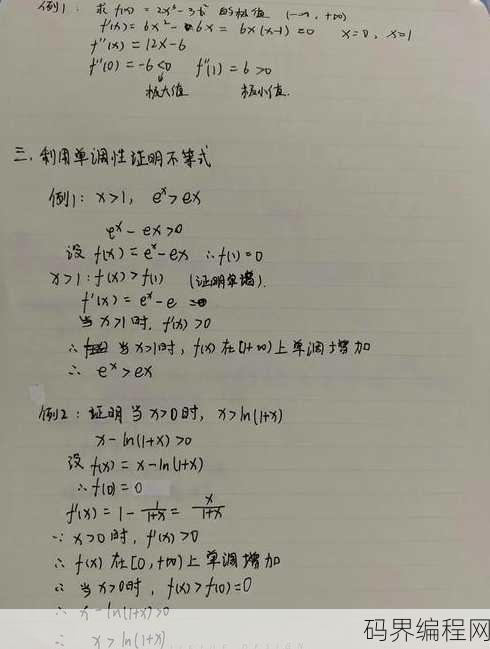 例1: 求 f(x) = 2x³-3x² 的极值 (-∞, +∞)
f'(x) = 6x² - 6x = 6x(x-1) = 0 x=0, x=1
f''(x) = 12x-6
f''(0) = -6 <0 f''(1) = 6 >0
极大值 极小值.
三. 利用单调性证明不等式
例1: x>1, eˣ>ex
eˣ-ex>0
设 f(x) = eˣ-ex ∴f(1)=0
x>1: f(x)>f(1) (证明单增).
f'(x) = eˣ-e
当 x>1时, f'(x)>0
∴ 当x>1时, f(x)在[1+∞)上单调增加
∴ eˣ>ex
例2: 证明当x>0时, x>ln(1+x)
x-ln(1+x)>0
设 f(x) = x-ln(1+x)
∴f(0) = 0
f'(x) = 1 - 1/(1+x) = x/(1+x)
∵ x>0时, f'(x)>0
∴ f(x)在[0, +∞)上单调增加
∴ 当x>0时, f(x)>f(0)=0
∴ x-ln(1+x)>0
∴ x>ln(1+x)
码界编程网